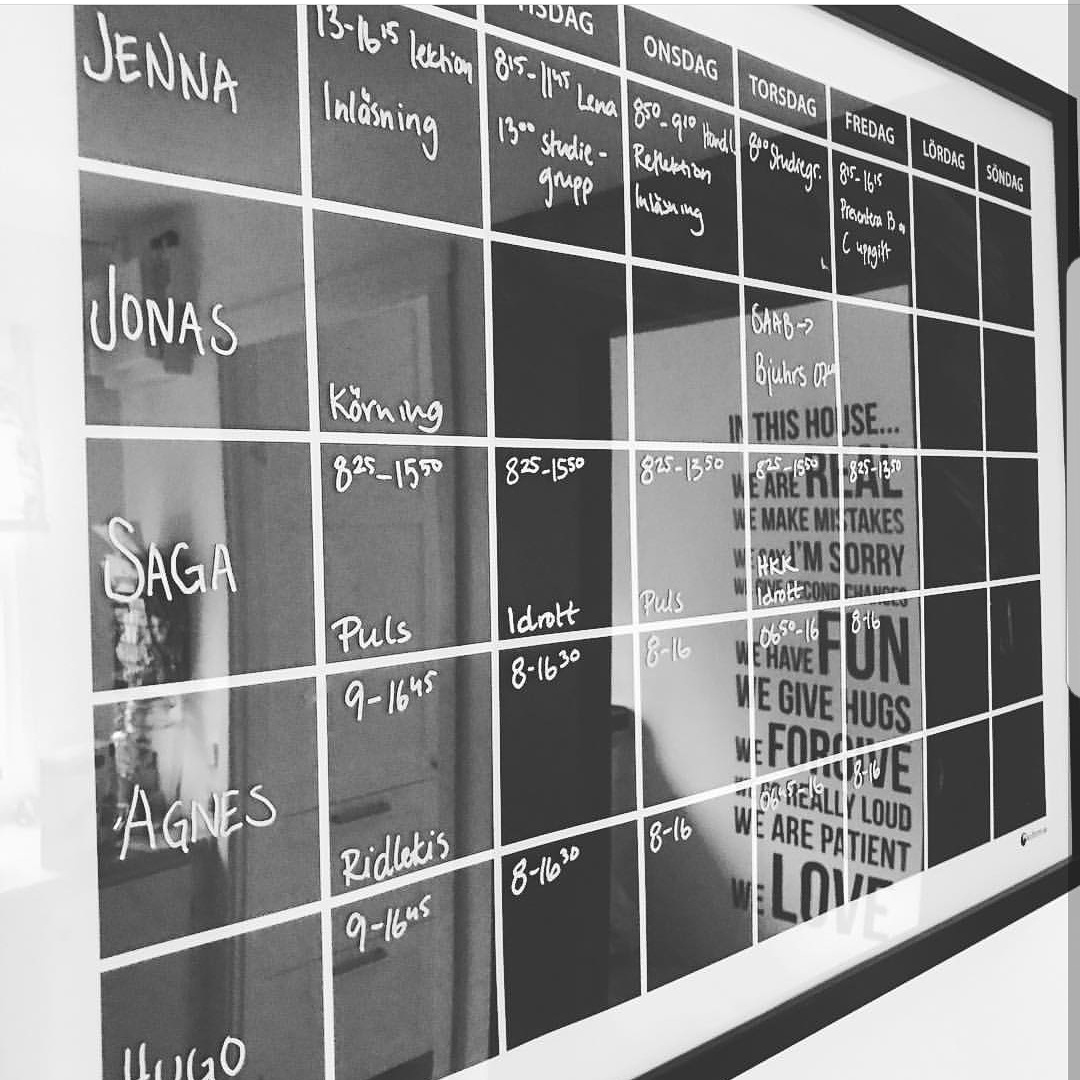 ISDAG
ONSDAG
TORSDAG
FREDAG
LÖRDAG
SÖNDAG
JENNA
13-16¹⁵ lektion
Inläsning
8¹⁵-11⁴⁵ Lena
13⁰⁰ studie-
grupp
8⁵⁰-9¹⁰ Handl
Reflektion
Inläsning
8⁰⁰ Studiegr.
8¹⁵-16¹⁵
Presentera B o
C uppgift
JONAS
Körning
SAAB->
Bjuhrs
SAGA
8²⁵-15⁵⁰
Puls
8²⁵-15⁵⁰
Idrott
8²⁵-13⁵⁰
Puls
8²⁵-15⁵⁰
HKK
Idrott
8²⁵-13⁵⁰
AGNES
9-16⁴⁵
Ridlekis
8-16³⁰
8-16
06⁵⁰-16
8-16
HUGO
9-16⁴⁵
8-16³⁰
8-16
06⁴⁵-16
8-16
IN THIS HOUSE...
WE ARE REAL
WE MAKE MISTAKES
WE SAY I'M SORRY
WE GIVE SECOND CHANCES
WE HAVE FUN
WE GIVE HUGS
WE FORGIVE
REALLY LOUD
WE ARE PATIENT
WE LOVE